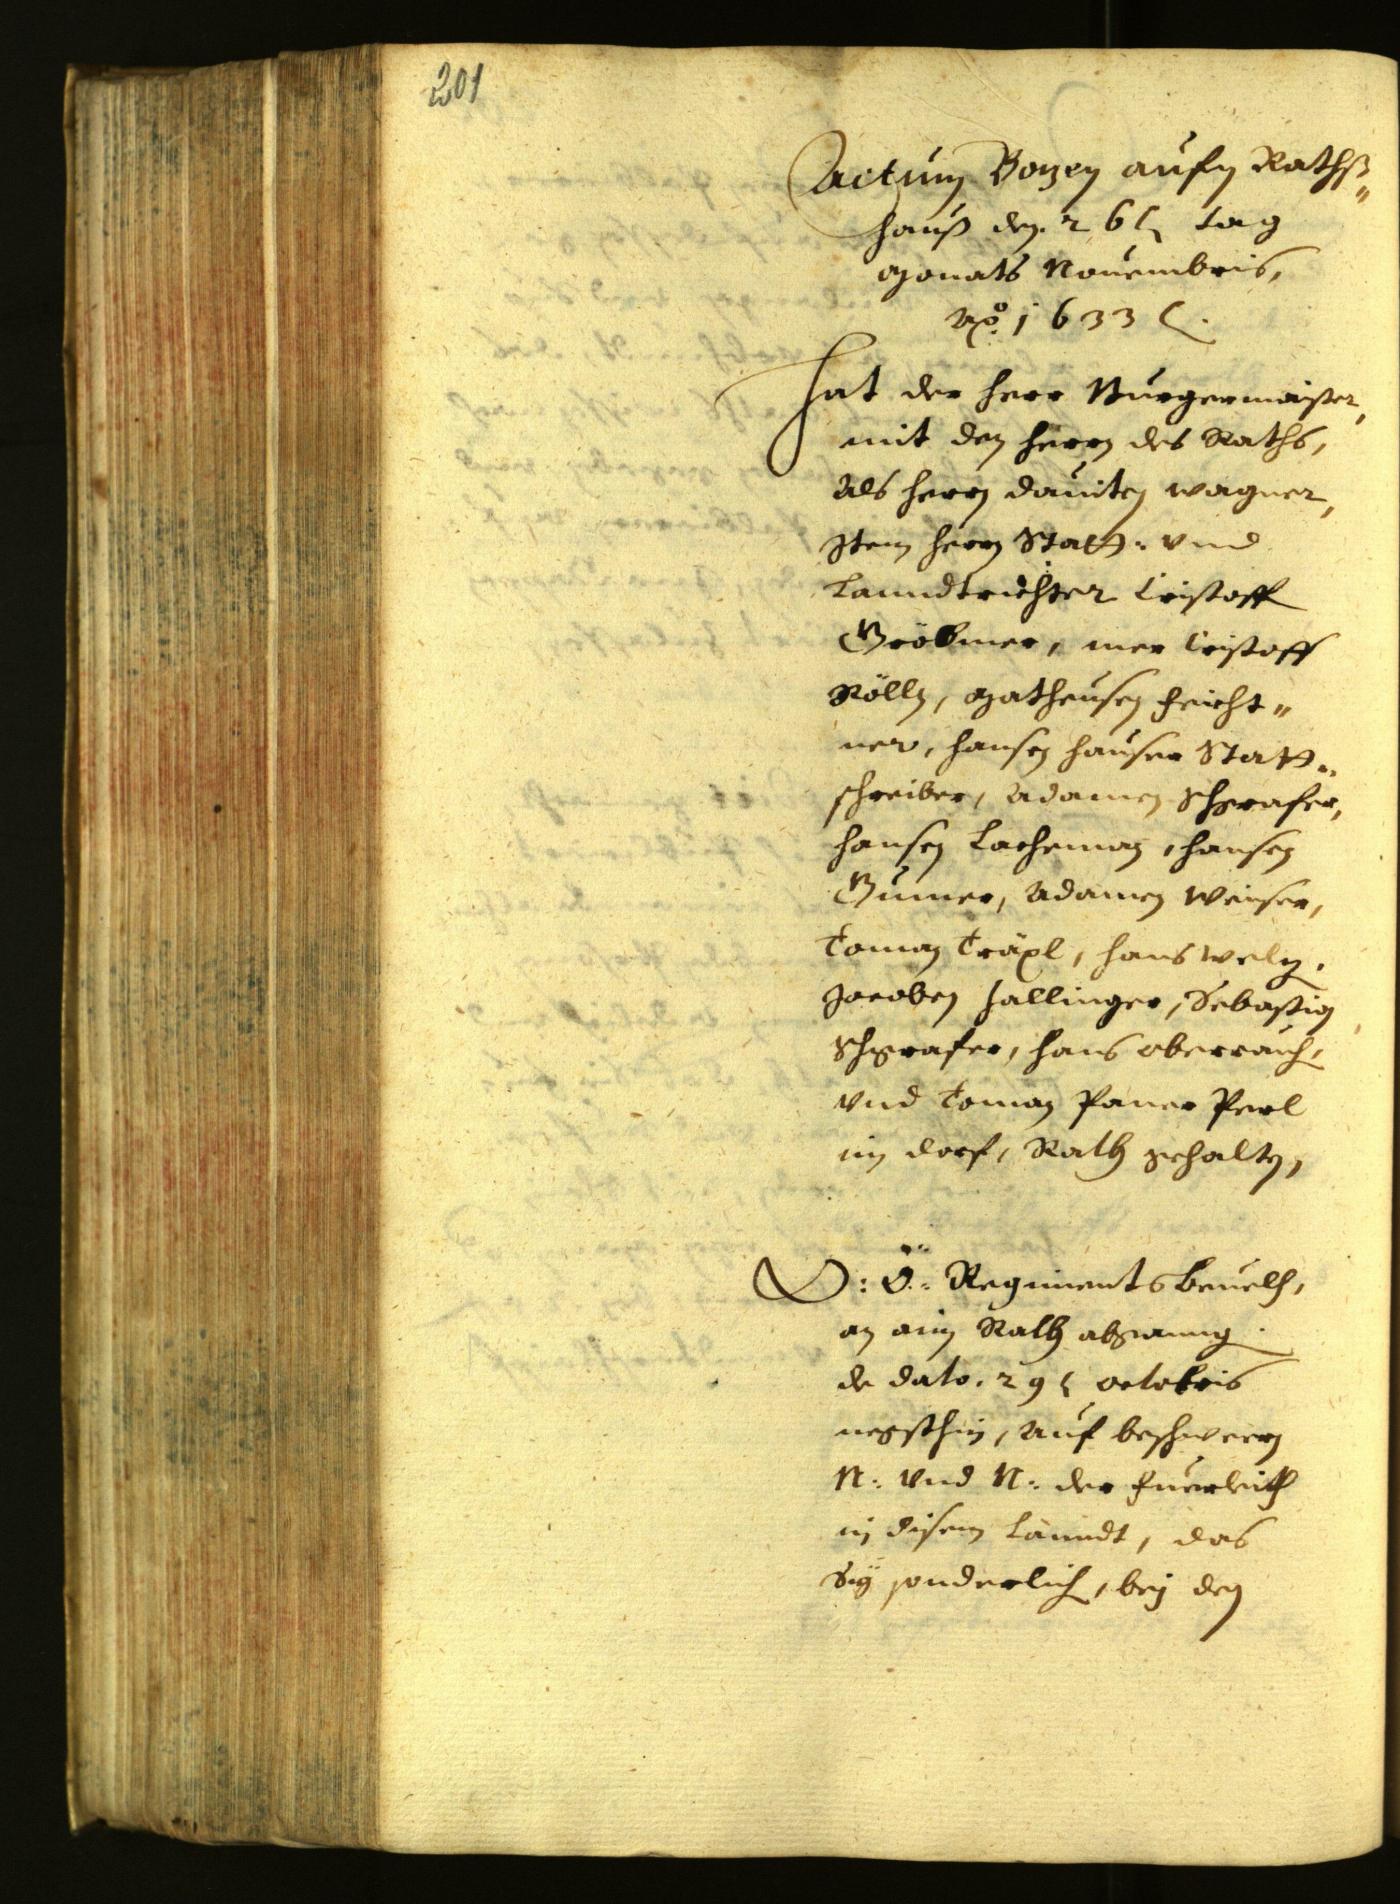 201
Actum Bozen aufm Rathß„
hauß den 26ten tag
Monats Nouembris,
Ao. 1633ten.
Hat der herr Burgermaister,
mit den herrn des Raths,
Als herrn dauiten wagner,
Item herrn Statt: vnd
Lanndtrichter Cristoff
Gröbmer, mer Cristoff
Rölln, Matheusen Feicht„
ner, hansen hauser Statt„
schreiber, Adamen Schgrafer,
hansen Lacheman, hansen
Gumer, Adamen Weiser,
Toman Träxl, hans Welz,
Jacoben hallinger, Sebastian
Schgrafer, hans oberrauch,
vnd Toman Paner Perl
im dorf, Rath gehalten,
O: Ö: Regiments beuelh,
an ain Rath abganng
de dato. 29ten octobris
negsthin, auf beschwern
N: vnd N: der Fuerleith
in disem Lanndt, das
Sÿ sonderlich, bej den